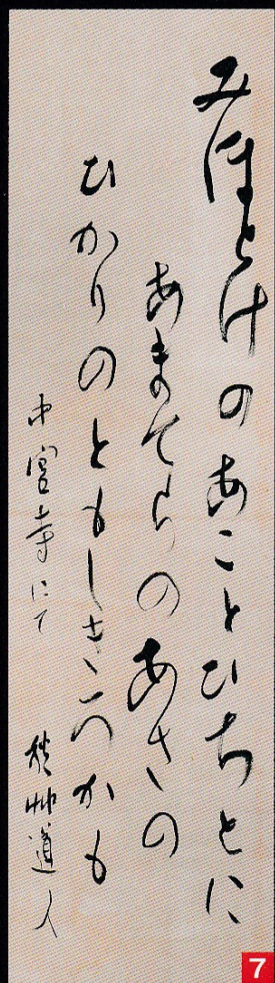 みほとけのあことひちとに
あまてらのあさの
ひかりのともしきろかも
中宮寺にて 秋艸道人
7